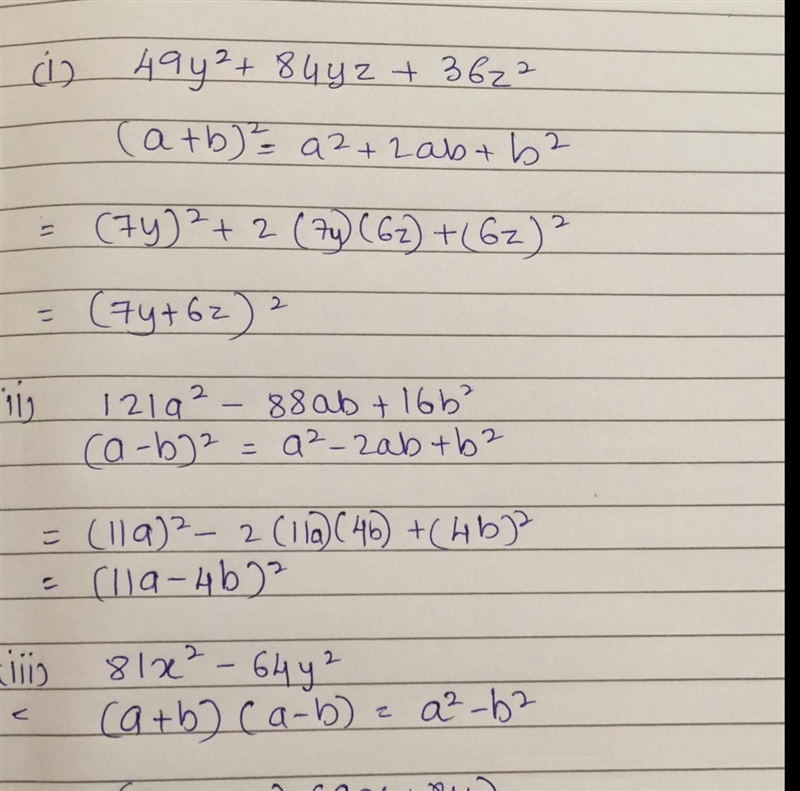 (i) 49y² + 84yz + 36z²
(a+b)² = a² + 2ab + b²
= (7y)² + 2 (7y)(6z) + (6z)²
= (7y+6z)²
ii) 121a² - 88ab + 16b²
(a-b)² = a² - 2ab + b²
= (11a)² - 2 (11a)(4b) + (4b)²
= (11a - 4b)²
(iii) 81x² - 64y²
< (a+b) (a-b) = a² - b²